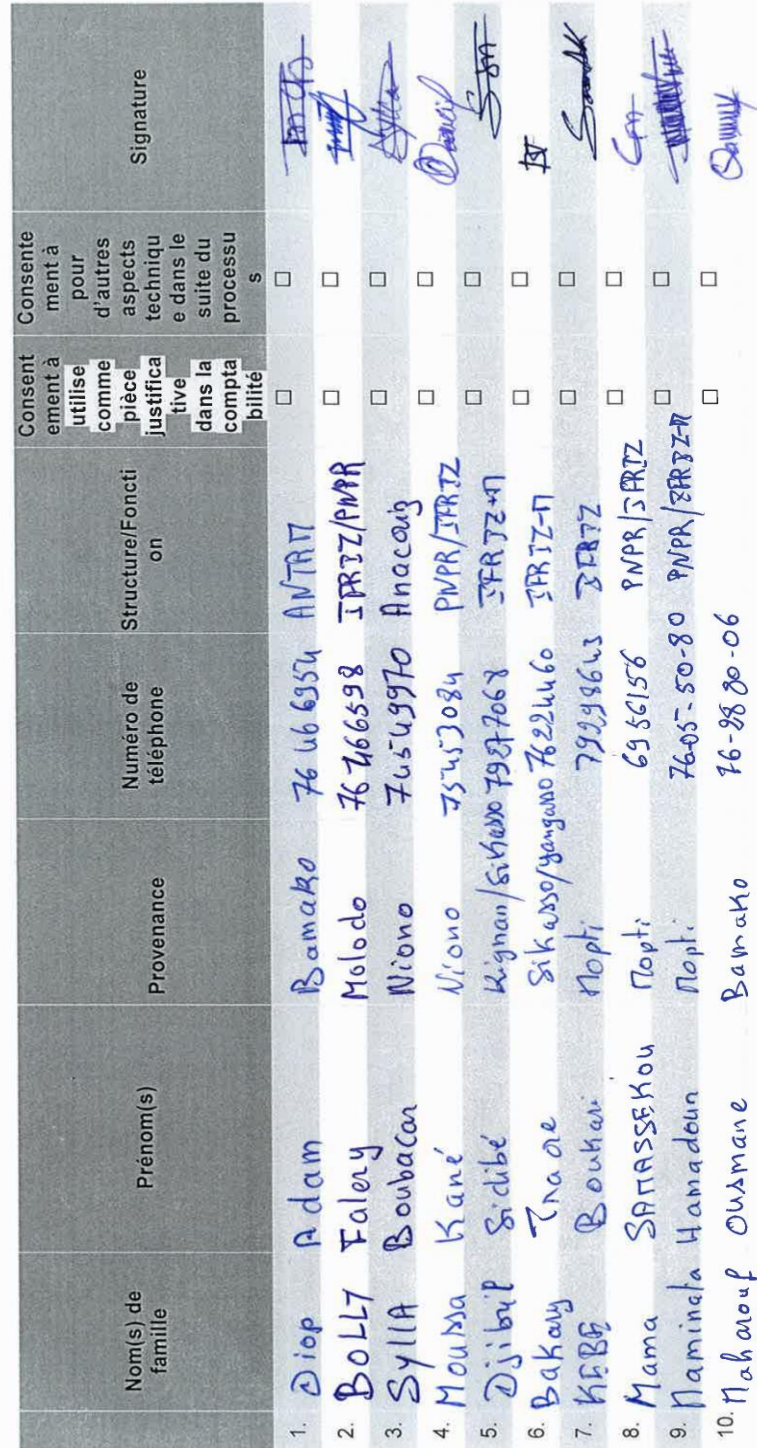 Nom(s) de famille Prénom(s) Provenance Numéro de téléphone Structure/Foncti on Consent ement à utilise comme pièce justifica tive dans la compta bilité Consente ment à pour d'autres aspects techniqu e dans le suite du processu s Signature
1. Diop Adam Bamako 76 46 69 54 ANTAM ☐ ☐
2. BOLLY Falery Molodo 76 466598 IFRIZ/PNPR ☐ ☐
3. SyllA Boubacar Niono 74549970 Anacoiz ☐ ☐
4. Moussa Kané Niono 75453084 PNPR/IFRIZ ☐ ☐
5. Djibril Sidibé Kignan/Sikasso 79277068 IFRIZ-M ☐ ☐
6. Bakary Traore Sikasso/yangasso 76224460 IFRIZ-M ☐ ☐
7. KEBE Boukari Mopti 79298643 IFRIZ ☐ ☐
8. Mama SAMASSEKOU Mopti 6956156 PNPR/IFRIZ ☐ ☐
9. Maminata Hamadoun Mopti 76-05-50-80 PNPR/IFRIZ-M ☐ ☐
10. Maharouf Ousmane Bamako 76-28 80-06 ☐ ☐